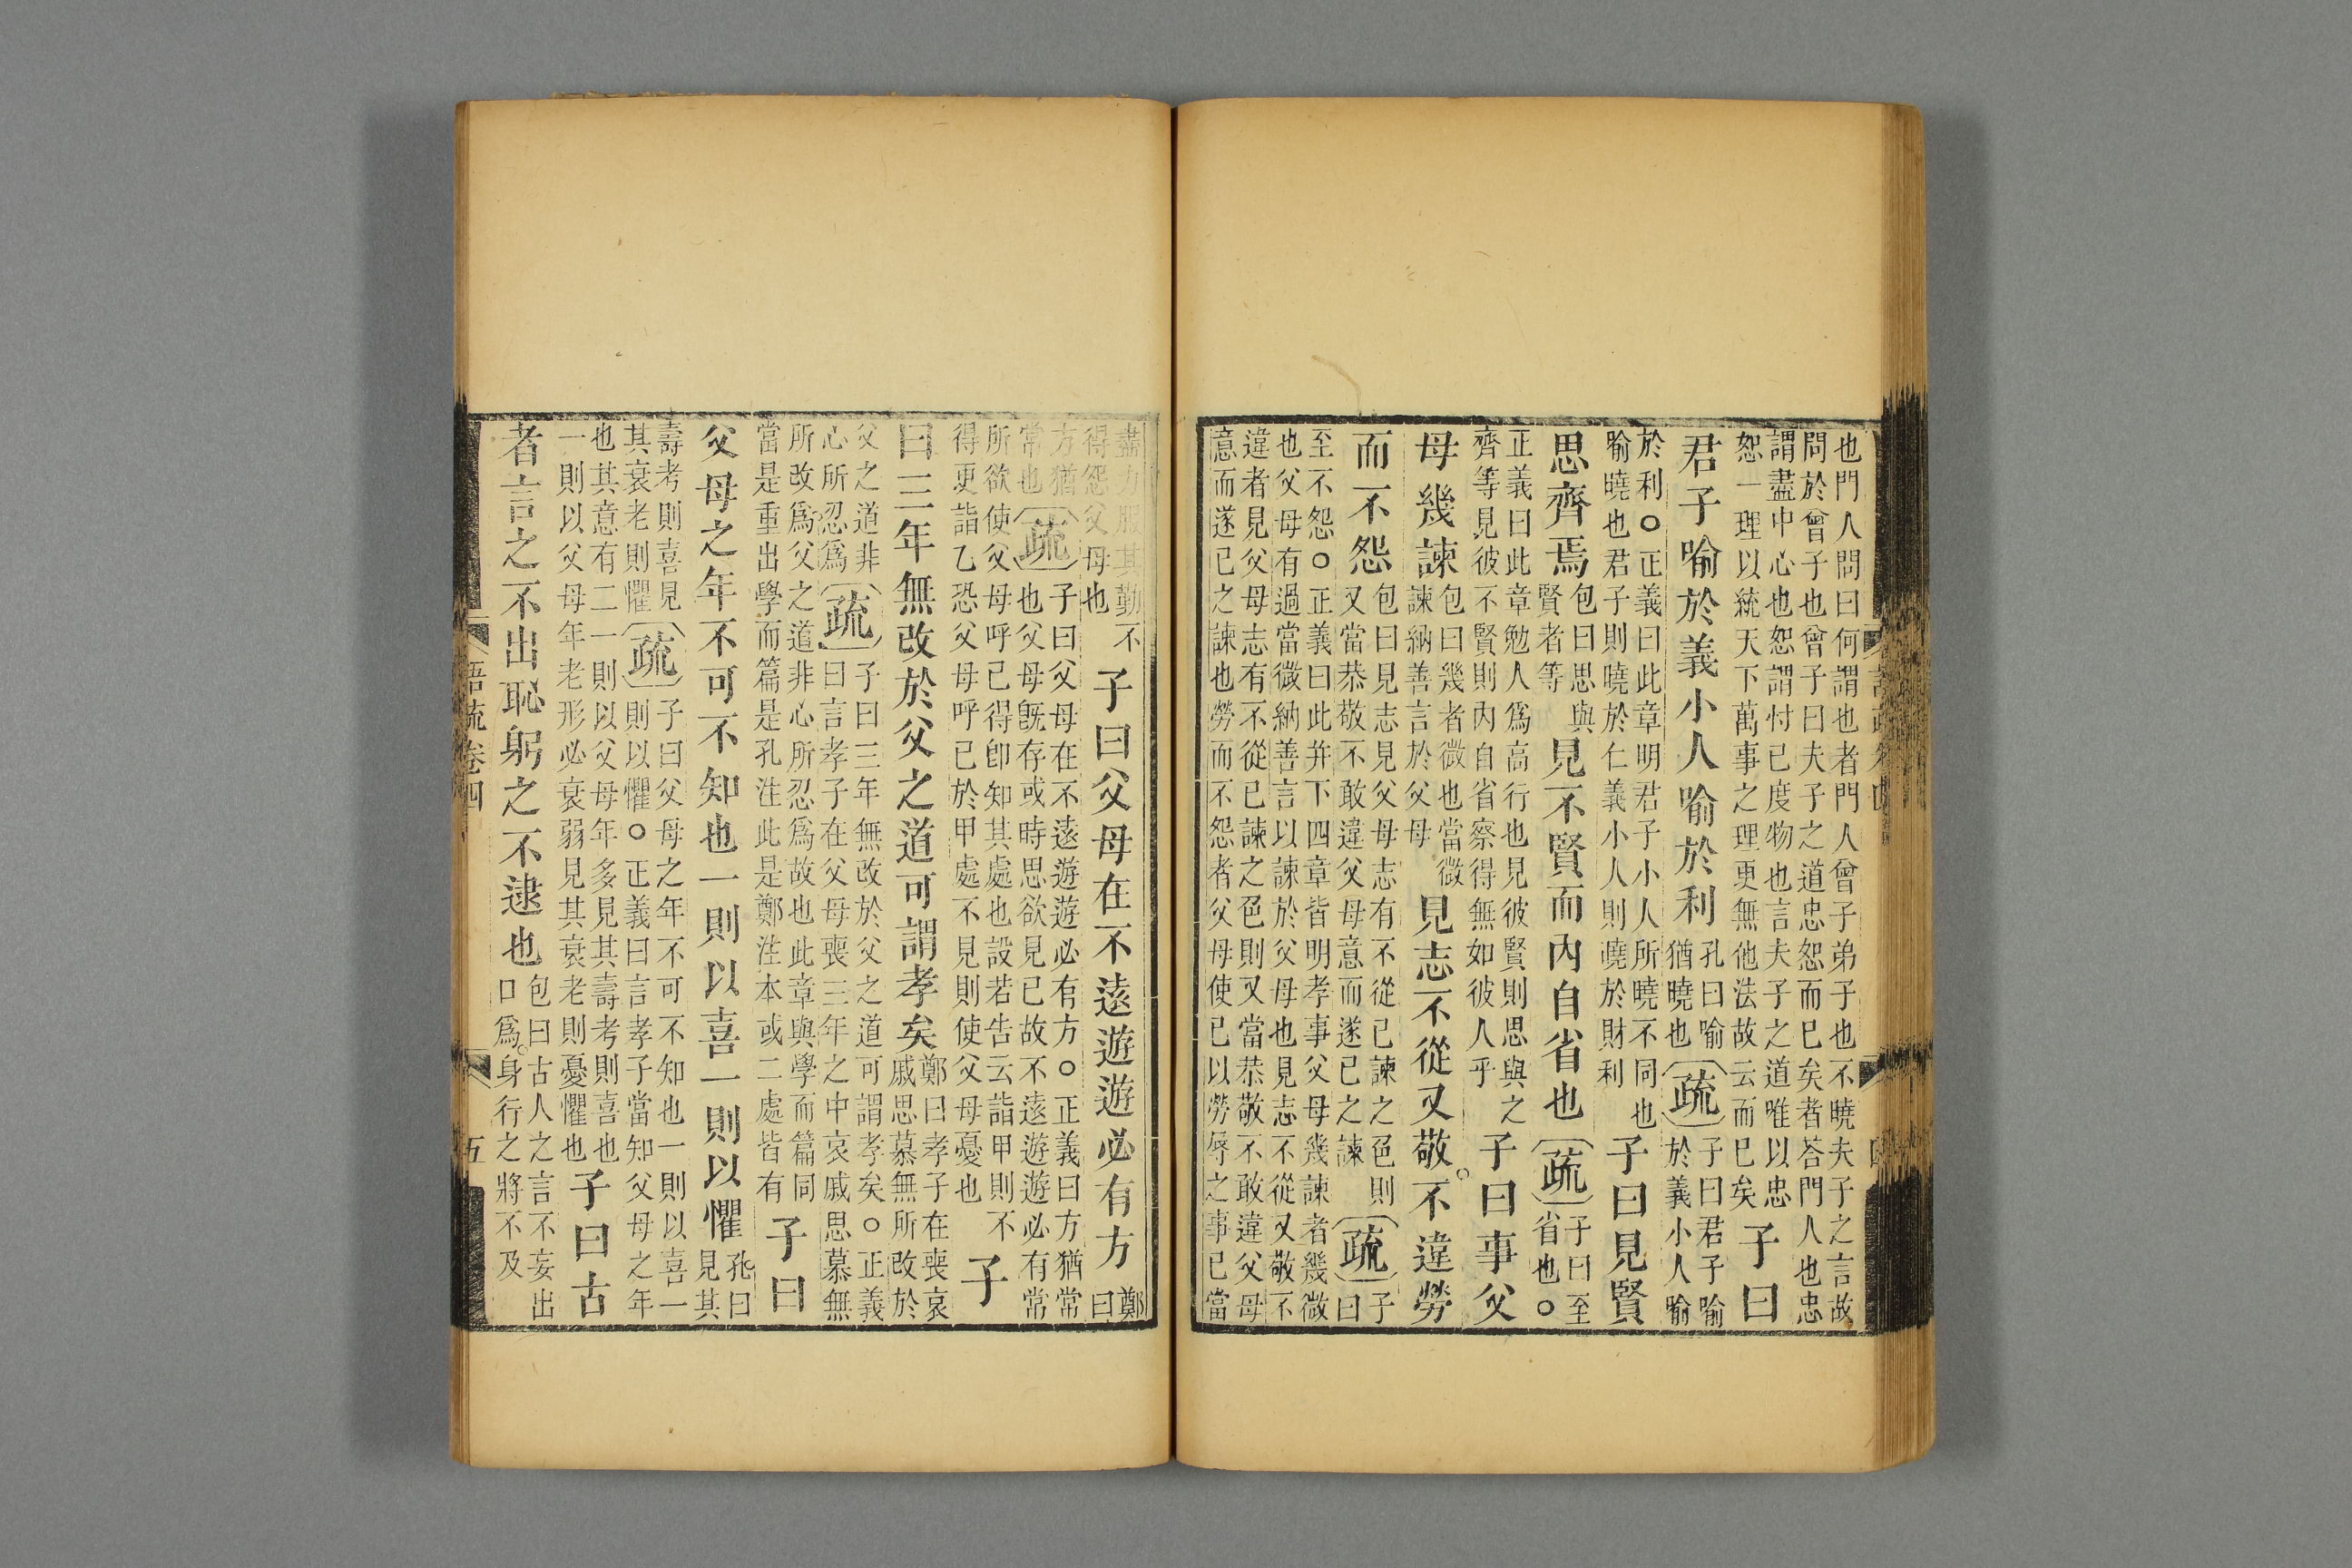 也門人問曰何謂也者門人曾子弟子也不曉夫子之言故
問於曾子也曾子曰夫子之道忠恕而已矣者荅門人也忠
謂盡中心也恕謂忖已度物也言夫子之道唯以忠
恕一理以統天下萬事之理更無他法故云而已矣子曰
君子喻於義小人喻於利孔曰喻猶曉也疏子曰君子喻於義小人喻
於利○正義曰此章明君子小人所曉不同也
喻曉也君子則曉於仁義小人則曉於財利子曰見賢
思齊焉包曰思與賢者等見不賢而內自省也疏子曰至省也○
正義曰此章勉人爲高行也見彼賢則思與之
齊等見彼不賢則內自省察得無如彼人乎子曰事父
母幾諫包曰幾者微也當微諫納善言於父母見志不從又敬不違勞
而不怨包曰見志見父母志有不從已諫之色則又當恭敬不敢違父母意而遂已之諫疏子曰
至不怨○正義曰此并下四章皆明孝事父母幾諫者幾微
也父母有過當微納善言以諫於父母也見志不從又敬不
違者見父母志有不從已諫之色則又當恭敬不敢違父母
意而遂已之諫也勞而不怨者父母使已以勞辱之事已當
盡力服其勤不得怨父母也子曰父母在不遠遊遊必有方鄭曰
方猶常也疏子曰父母在不遠遊遊必有方○正義曰方猶常也父母旣存或時思欲見已故不遠遊遊必有常
所欲使父母呼已得卽知其處也設若告云詣甲則不
得更詣乙恐父母呼已於甲處不見則使父母憂也子
曰三年無改於父之道可謂孝矣鄭曰孝子在喪哀戚思慕無所改於
父之道非心所忍爲疏子曰三年無改於父之道可謂孝矣○正義曰言孝子在父母喪三年之中哀戚思慕無
所改爲父之道非心所忍爲故也此章與學而篇同
當是重出學而篇是孔注此是鄭注本或二處皆有子曰
父母之年不可不知也一則以喜一則以懼孔曰見其
壽考則喜見其衰老則懼疏子曰父母之年不可不知也一則以喜一則以懼○正義曰言孝子當知父母之年
也其意有二一則以父母年多見其壽考則喜也
一則以父母年老形必衰弱見其衰老則憂懼也子曰古
者言之不出恥躬之不逮也包曰古人之言不妄出口爲身行之將不及
語疏卷四
五